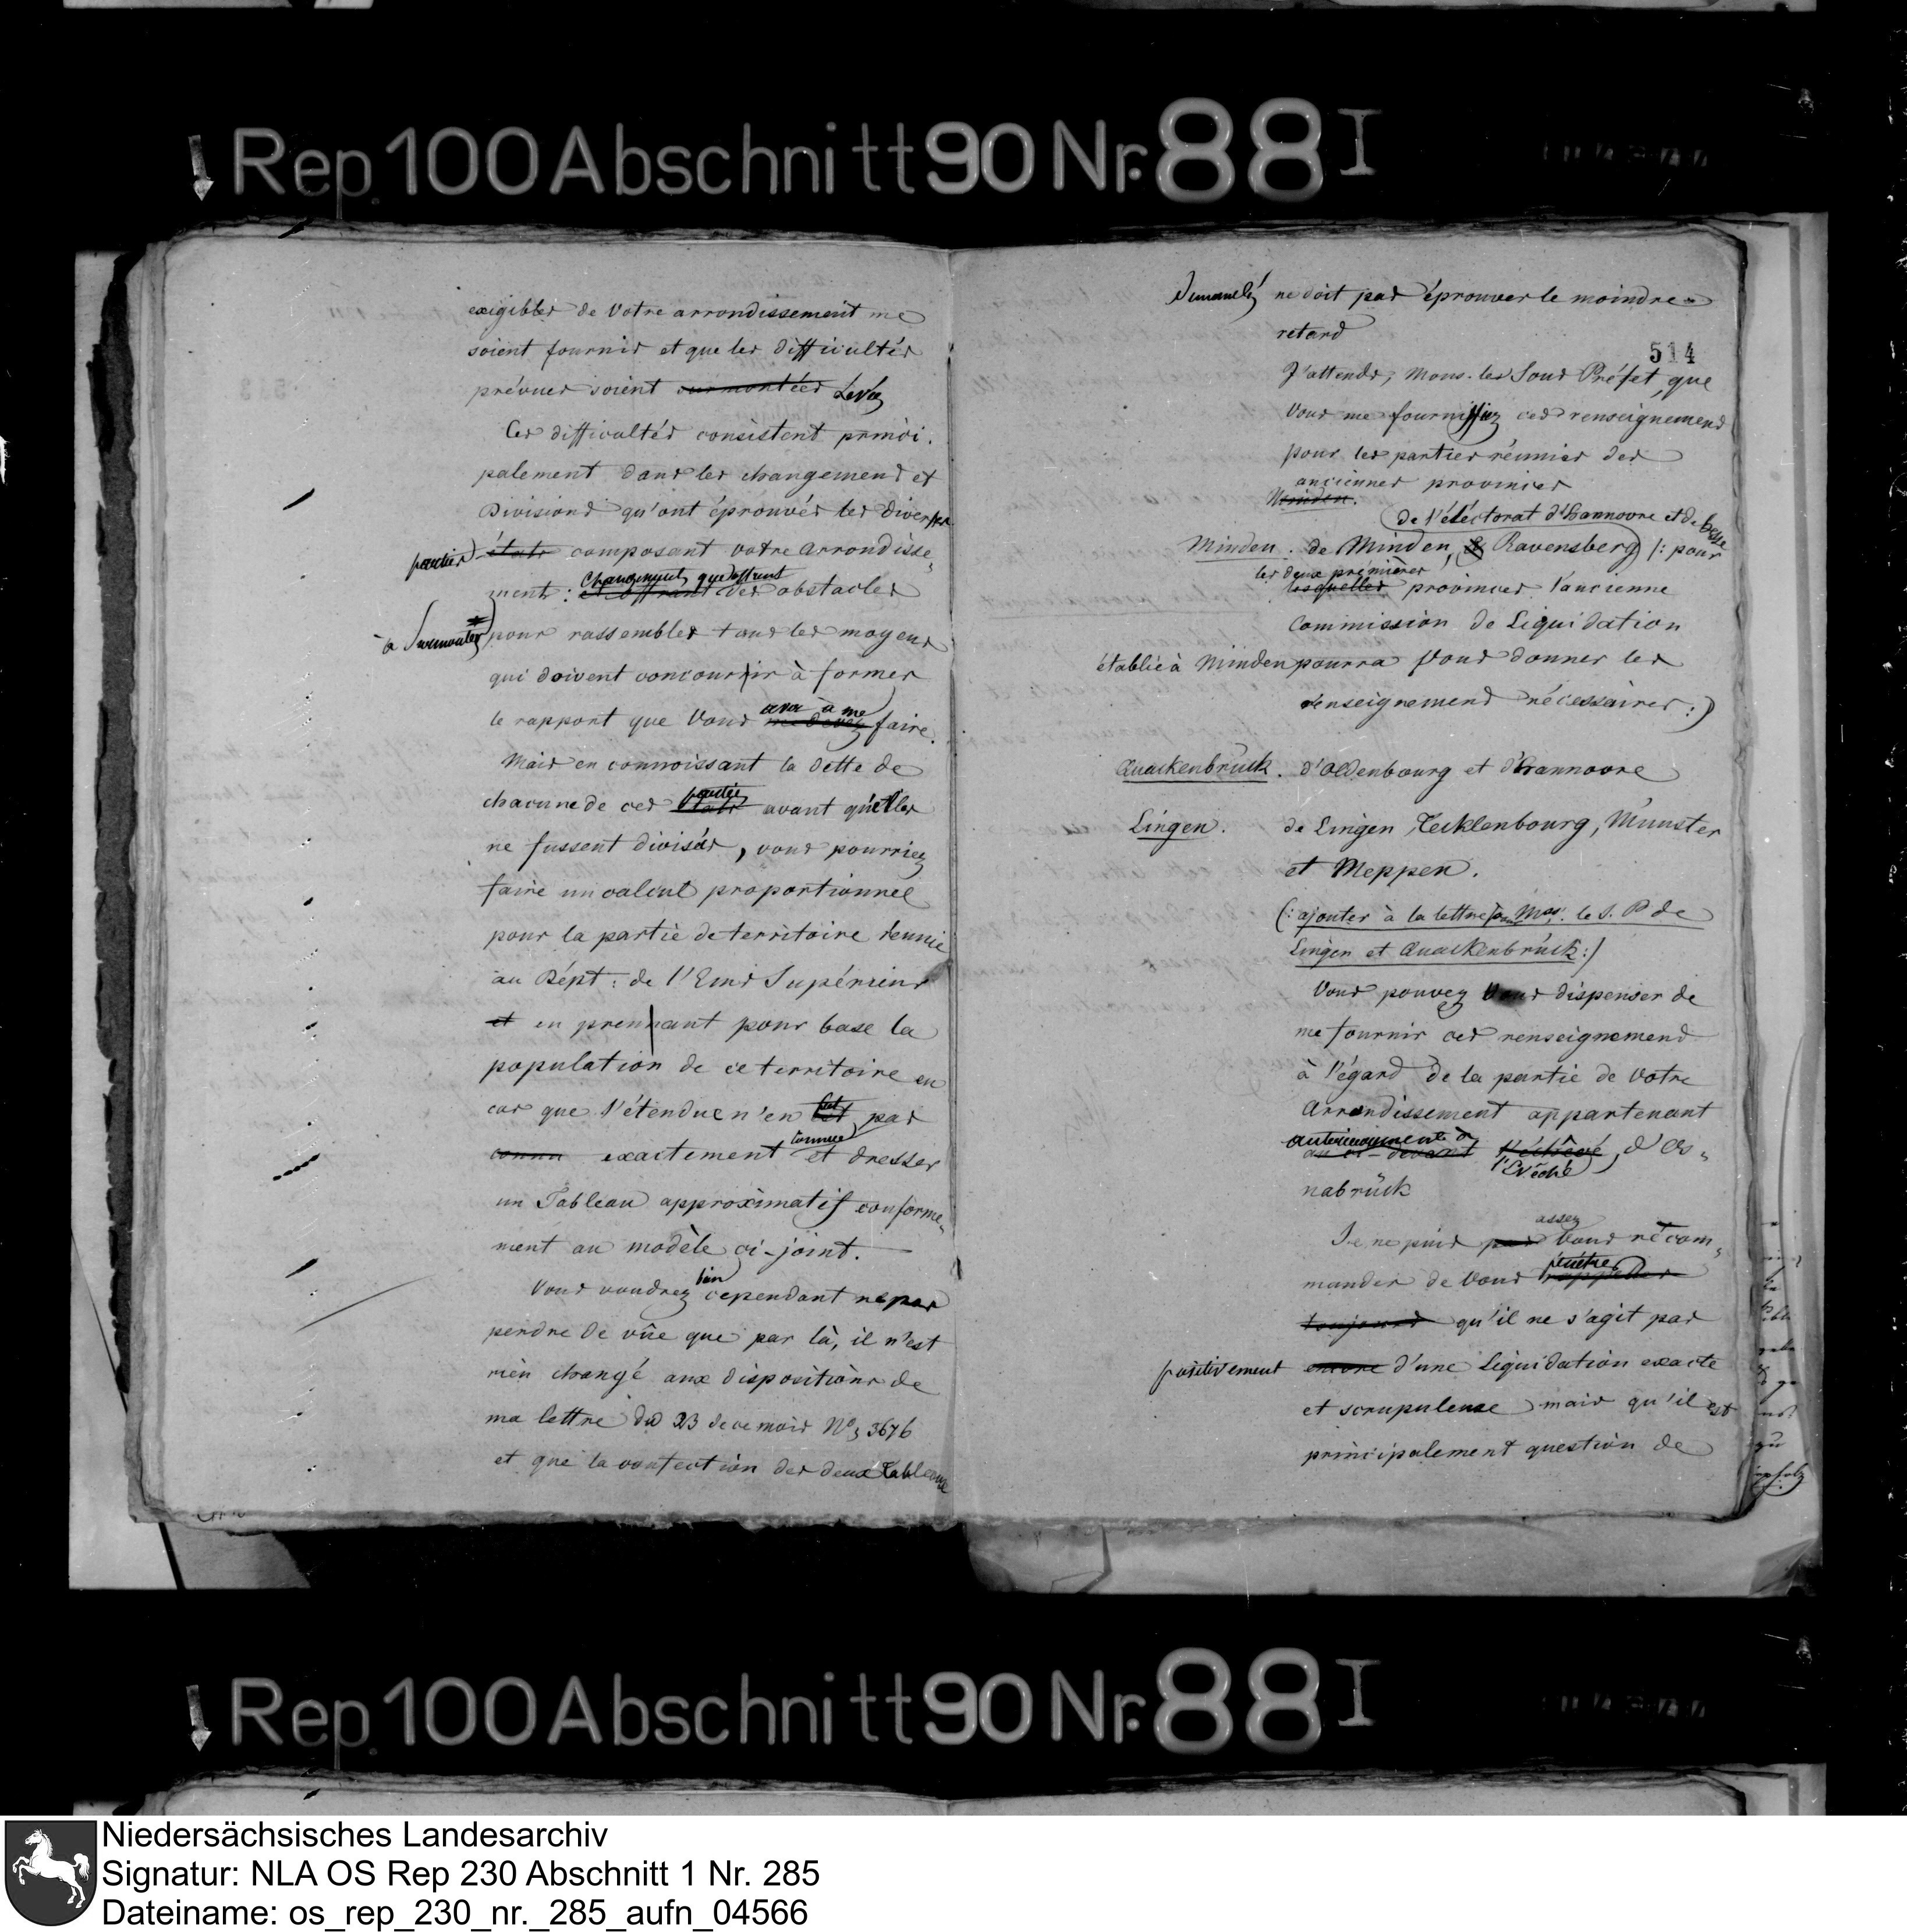 Rep 100 Abschnitt 90 Nr. 88 I
exigibles de votre arrondissement me
soient fournis et que les difficultés
prévues soient surmontées Levées
Ces difficultés consistent princi-
palement dans les changemens et
Divisions qu'ont éprouvés les diverses
parties états composant votre arrondisse-
ment: changemens qui offrent et offrant des obstacles
à surmonter pour rassembler tous les moyens
qui doivent concourrir à former
le rapport que Vous avez à me me devez faire.
Mais en connoissant la dette de
chacune de ces parties états avant qu'elles
ne fussent divisés, vous pourriez
faire un calcul proportionnel
pour la partie de territoire reunie
au Dépt: de l'Ems Supérieur
et en prennant pour base la
population de ce territoire en
cas que l'étendue n'en soit est pas
connu exactement connue et dresser
un Tableau approximatif conforme-
ment au modèle ci-joint.
Vous voudrez bien cependant ne pas
perdre de vûe que par là, il n'est
rien changé aux dispositions de
ma lettre du 23 de ce mois No. 3676
et que la confection des deux tableaux
514
demandés ne doit pas éprouver le moindre
retard
J'attends, Mons. les Sous Préfet, que
Vous me fournissiez ces renseignemens
pour les parties réunies des
anciennes provinces
Minden.
de l'électorat d'Hannovre et de hesse
Minden. de Minden, & Ravensberg) /: pour
les deux premières
lesquelles provinces l'ancienne
Commission de Liquidation
établie à Minden pourra Vous donner les
renseignemens nécessaires:)
Quackenbrück. d'Oldenbourg et d'Hannovre
Lingen. de Lingen, Tecklenbourg, Munster
et Meppen.
(: ajouter à la lettre pour Mrs. le S. P de
Lingen et Quackenbrück:)
Vous pouvez Vous dispenser de
me fournir ces renseignemens
à l'égard de la partie de votre
Arrondissement appartenant
anterieurement à
au ci-devant l'évêché l'Evêché, d'Os-
nabrück
Je ne puis pas assez Vous récom-
mander de Vous pénétrer rappeller
toujours qu'il ne s'agit pas
positivement encore d'une Liquidation exacte
et scrupuleuse mais qu'il est
principalement question de
Rep 100 Abschnitt 90 Nr. 88 I
Niedersächsisches Landesarchiv
Signatur: NLA OS Rep 230 Abschnitt 1 Nr. 285
Dateiname: os_rep_230_nr._285_aufn_04566